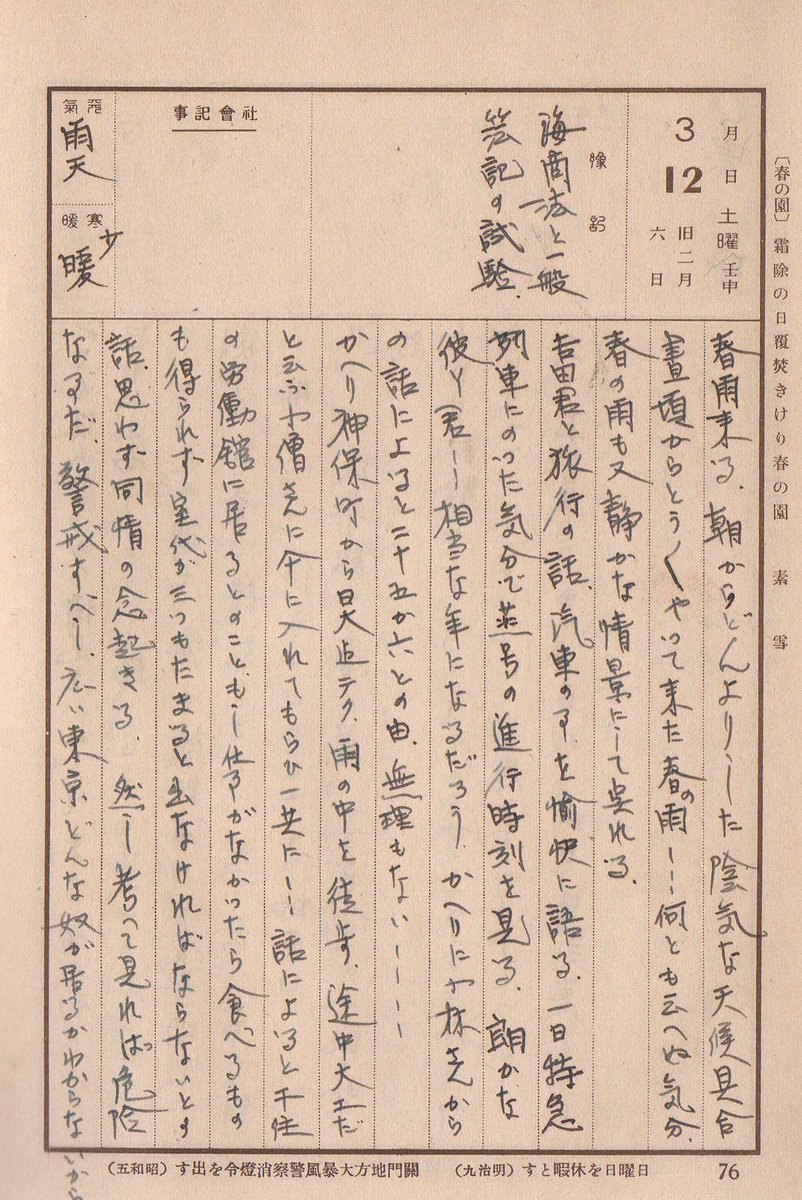 〔春の園〕 霜除の日覆焚きけり春の園 素雪
3月12日 土曜 壬申
旧二月六日
豫記
海商法と一般
簿記の試験、
社會記事
天氣 雨天
寒暖 少暖
春雨来る、朝からどんよりした陰気な天候具合
晝頃からとう〱やって来た春の雨――何とも云へぬ気分、
春の雨も又静かな情景にして呉れる、
吉田君と旅行の話、汽車の事を愉快に語る、一日特急
列車にのった気分で燕号の進行時刻を見る、朗かな
彼Y君――相当な年になるだろう、かへりに林さんから
の話によると二十五か六との由、無理もない――
かへり神保町から日大迄テク、雨の中を徒歩、途中大工だ
と云ふ小僧さんに傘に入れてもらひ一共に――話によると千住
の労働舘に居るとのこと、もし仕事がなかったら食べるもの
も得られず室代が三つもたまると出なければならないとの
話、思わず同情の念起きる、然し考へて見れば危険
なるだ、警戒すべし、広い東京どんな奴が居るかわからないから
日曜日を休暇とす（明治九） 關門地方大暴風警察消燈令を出す（昭和五）
76